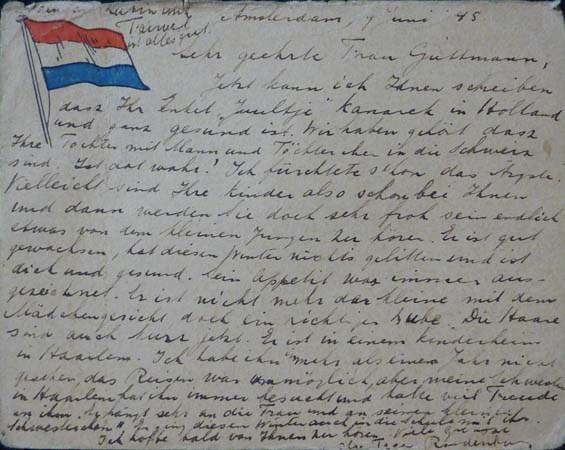 Amsterdam, 7 Juni 45
ist alles gut.
Sehr geehrte Frau Guttmann,
Jetzt kann ich Ihnen schreiben
dasz Ihr Enkel "Juultje" Kanarek in Holland
und ganz gesund ist. Wir haben gehört dasz
Ihre Tochter mit Mann und Töchterchen in die Schweiz
sind. Ist dat wahr? Ich fürchtete schon das Ärgste.
Vielleicht sind Ihre Kinder also schon bei Ihnen
und dann werden Sie doch sehr froh sein endlich
etwas von dem kleinen Jungen zu hören. Er ist gut
gewachsen, hat diesen Winter nichts gelitten und ist
dick und gesund. Sein Appetit war immer aus-
gezeichnet. Er ist nicht mehr der kleine mit dem
Mädchengesicht doch ein richtiger Bube. Die Haare
sind auch kurz jetzt. Er ist in einem Kinderheim
in Haarlem. Ich habe ihn mehr als einen Jahr nicht
gesehen, das Reisen war unmöglich, aber meine Schwester
in Haarlem hat ihn immer besucht und hatte viel Freude
an ihm. Er hängt sehr an die Frau und an seiner kleinen
"Schwesterchen". Er ging diesen Winter auch in die Schule mit ihr.
Ich hoffe bald von Ihnen zu hören. Viele Grüsse